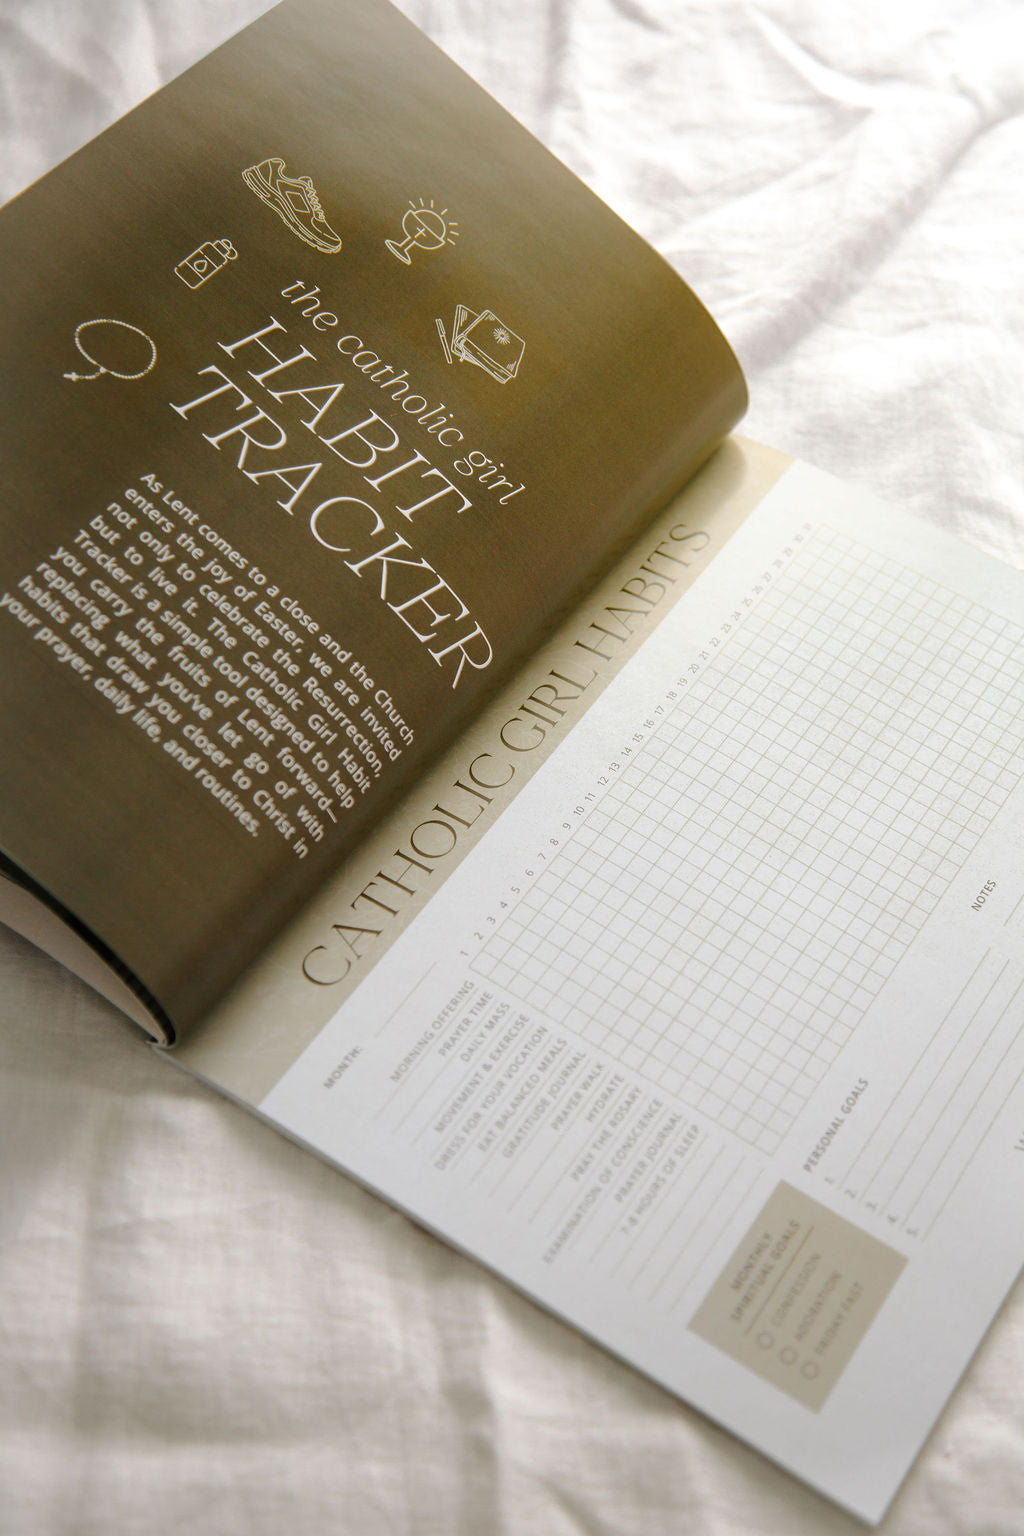 the catholic girl
HABIT
TRACKER
As Lent comes to a close and the Church
enters the joy of Easter, we are invited
not only to celebrate the Resurrection,
but to live it. The Catholic Girl Habit
Tracker is a simple tool designed to help
you carry the fruits of Lent forward—
replacing what you've let go of with
habits that draw you closer to Christ in
your prayer, daily life, and routines.
CATHOLIC GIRL HABITS
MONTH:
1 2 3 4 5 6 7 8 9 10 11 12 13 14 15 16 17 18 19 20 21 22 23 24 25 26 27 28 29 30 31
MORNING OFFERING
PRAYER TIME
DAILY MASS
MOVEMENT & EXERCISE
DRESS FOR YOUR VOCATION
EAT BALANCED MEALS
GRATITUDE JOURNAL
PRAYER WALK
HYDRATE
PRAY THE ROSARY
EXAMINATION OF CONSCIENCE
PRAYER JOURNAL
7-8 HOURS OF SLEEP
MONTHLY
SPIRITUAL GOALS
CONFESSION
ADORATION
FRIDAY FAST
PERSONAL GOALS
1.
2.
3.
4.
5.
NOTES